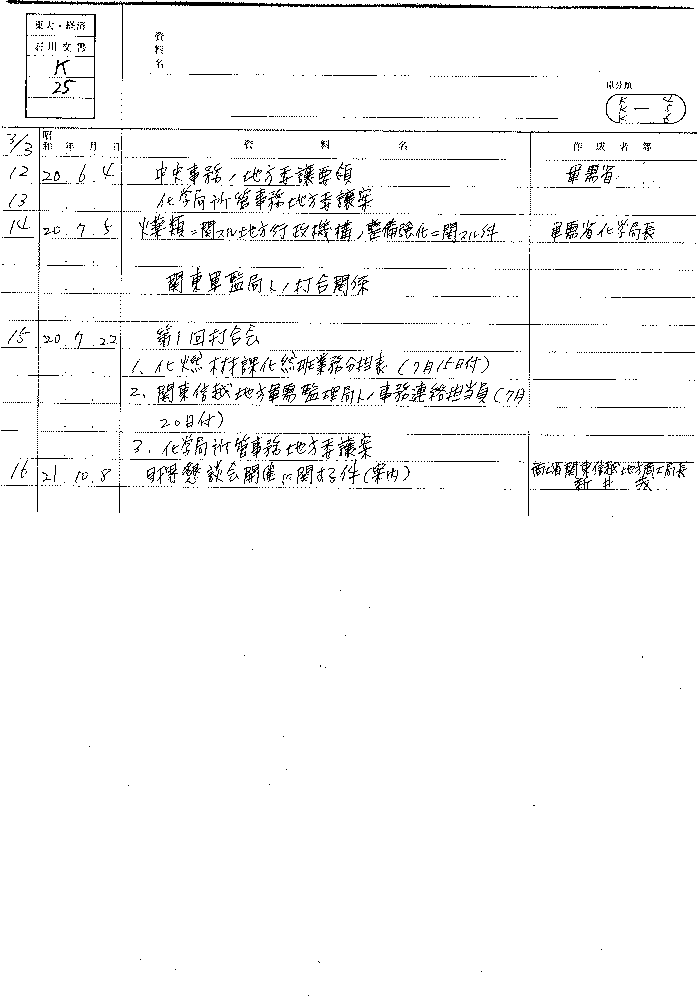 東大・経済
石川文書
K
25
資料名
原分類
K — 4
K 5
K 6
3/3 昭和 年 月 日 資 料 名 作 成 者 等
12 20 6 4 中央事務ノ地方委譲要領 軍需省
13 化学局所管事務地方委譲案
14 20 7 5 燐類ニ関スル地方行政機構ノ整備強化ニ関スル件 軍需省化学局長
関東軍監局トノ打合関係
15 20 7 22 第1回打合会
1、化燃材課化総班業務分担表(7月15日付)
2、関東信越地方軍需監理局トノ事務連絡担当員(7月
20日付)
3、化学局所管事務地方委譲案
16 21 10 8 懇談会開催に関する件(案内) 商工省関東信越地方商工局長
新井茂